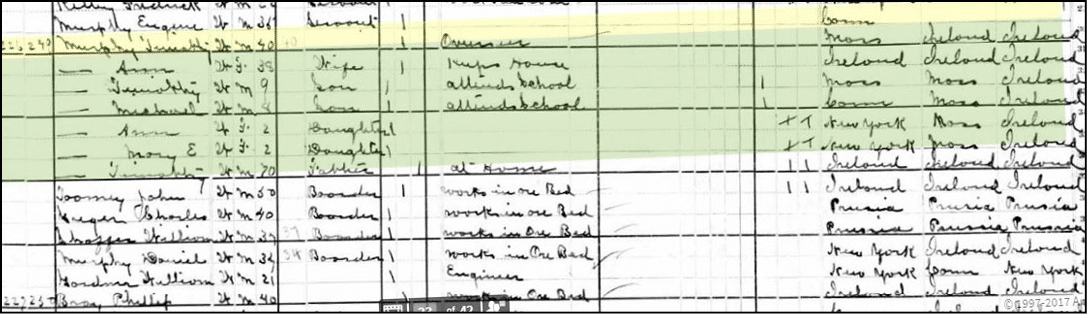 Murphy Eugene W M 35 Servant 1 Conn
225 240 Murphy Timothy W M 40 40 1 Overseer Mass Ireland Ireland
— Ann W F 38 Wife 1 Keeps House Ireland Ireland Ireland
— Timothy W M 9 Son 1 attends School 1 Mass Mass Ireland
— Michael W M 8 Son 1 attends School 1 Conn Mass Ireland
— Ann W F 2 Daughter 1 New York Mass Ireland
— Mary E W F 2 Daughter 1 New York Mass Ireland
— Timothy W M 70 Father 1 at Home 1 1 Ireland Ireland Ireland
Toomey John W M 50 Boarder 1 works in ore Bed 1 1 Ireland Ireland Ireland
Charles W M 40 Boarder 1 works in ore Bed Prusia Prusia Prusia
William W M 37 37 Boarder 1 works in Ore Bed Prusia Prusia Prusia
Murphy Daniel W M 34 34 Boarder 1 works in Ore Bed New York Ireland Ireland
Gardner William W M 21 1 Engineer New York Conn New York
Bray Philip W M 40 works in Ore Bed Ireland Ireland Ireland
of 42
©1997-2017 A